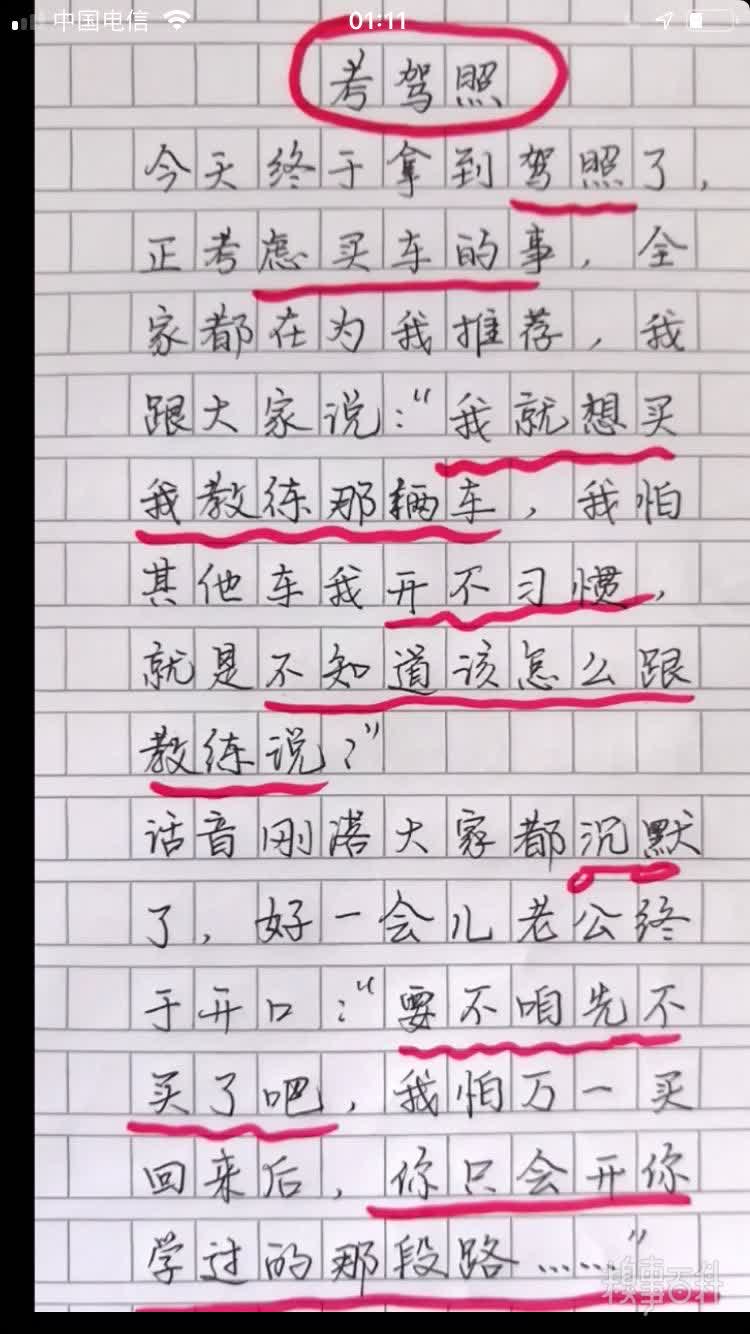 中国电信
01:11
考驾照
今天终于拿到驾照了，
正考虑买车的事，全
家都在为我推荐，我
跟大家说：“我就想买
我教练那辆车，我怕
其他车我开不习惯，
就是不知道该怎么跟
教练说？”
话音刚落大家都沉默
了，好一会儿老公终
于开口：“要不咱先不
买了吧，我怕万一买
回来后，你只会开你
学过的那段路……”
糗事百科